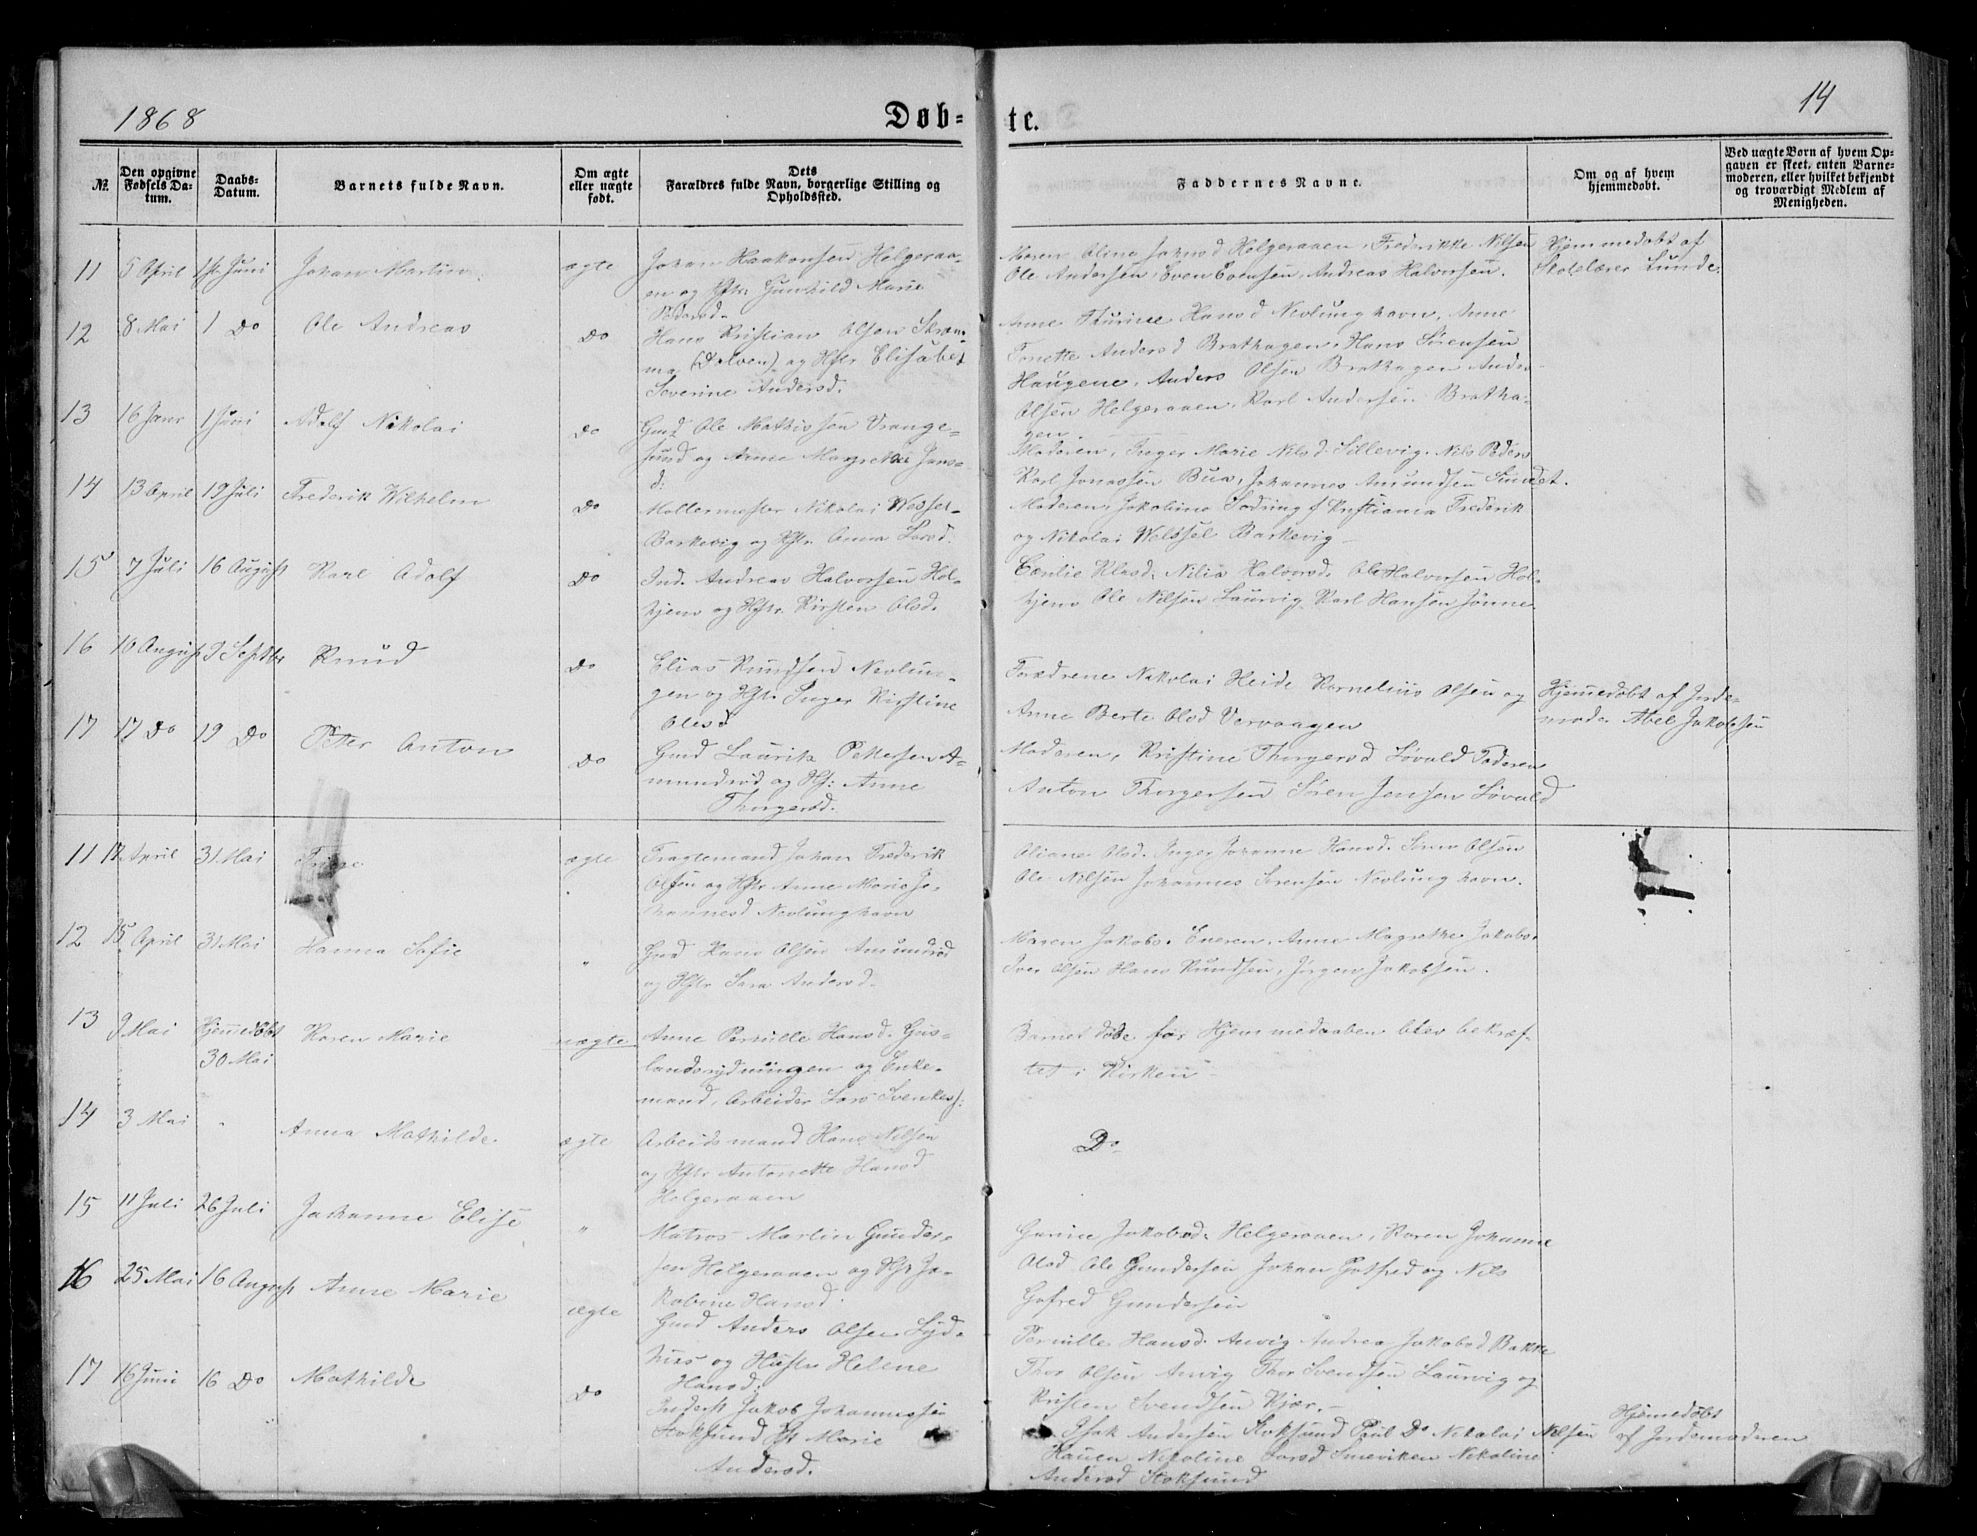 1868
Døb-
te.
14
No.
Den opgivne Fødsels Da-tum.
Daabs-Datum.
Barnets fulde Navn.
Om ægte eller uægte født.
Dets Forældres fulde Navn, borgerlige Stilling og Opholdssted.
Faddernes Navne.
Om og af hvem hjemmedøbt.
Ved uægte Børn af hvem Op-gaven er skeet, enten Barne-moderen, eller hvilket bekjendt og troværdigt Medlem af Menigheden.
11 5 April 1ste Juni Johan Martin ægte
Johan Haakonsen Helgeraa-
en og Hstr. Gunhild Marie
Maren Oline Johnsd Helgeraaen, Frederikke Nilsen
Ole Andersen, Even Evensen, Andreas Halvorsen.
Hjemmedøbt af
Skolelærer Lunde.
12 8 Mai 1 Do Ole Andreas Do
Hans Kristian Olsen
(Dolven) og Hstr Elisabet
Severine Andersd.
Anne Thurine Hansd Nevlunghavn, Anne
Tonette Andersd Brathagen, Hans Sørensen
Haugene, Anders Olsen Brathagen Anders
Olsen Helgeraaen, Karl Andersen Bratha-
gen.
13 16 Janr 1 Juni Adolf Nikolai Do
Gmd Ole Mathissen Vrange-
sund og Anne Margrethe Jans-
d.
Moderen, Inger Marie Nilsd Sillevig, Nils Peders
Karl Jonassen Bua, Johannes Amundsen Sundet.
14 13 April 19 Juli Frederik Wilhelm Do
Møllermester Nikolai Wessel
Barkevig og Hstr. Anna Larsd.
Moderen, Jakobine Sødring f Kristiania Frederik
og Nikolai Wessel Barkevig
15 7 Juli 16 August Karl Adolf Do
Ind. Andreas Halvorsen Hol-
tjern og Hstr. Kirsten Olsd.
Halvorsd. Ole Halvorsen Hol-
tjern Ole Nilsen Laurvig Karl Hansen Tønne
16 10 August Septbr Knud Do
Elias Knudsen Nevlun-
gen og Hstr. Inger Kirstine
Olesd
Forældrene Nikolai Heide Kornelius Olsen og
Anne Berte Olsd Vervaagen
Hjemedøbt af Jorde-
mode. Abel Jakobsen
17 17 Do 19 Do Peter Anton Do
Gmd Laurits Pettersen A-
mundrød og Hst: Anne
Thorgersd.
Moderen, Kristine Thorgersd Løvald Faderen
Anton Thorgersen Søren Jensen Løvald
11 April 31 Mai ægte
Fragtemand Johan Frederik
Olsen og Hstr Anne Marie Jo-
hannesd Nevlunghavn
Oliane Olsd. Inger Johanne Hansd. Olsen
Ole Nilsen Johannes Sørensen Nevlunghavn.
12 15 April 31 Mai Hanna Sofie "
Gmd Hans Olsen Amundrød
og Hstr Sara Andersd.
Maren Jakobs. Eneren, Anne Magrethe Jakobs.
Iver Olsen Hans Knudsen, Jørgen Jakobsen.
13 9 Mai Hjemedøbt
30 Mai Karen Marie uægte
Anne Pernille Hansd. Gus-
landsrydningen og Enke-
mand, Arbeider Lars Svenkes:
Barnet døde før Hjemmedaaben blev bekræf-
tet i Kirken
14 3 Mai Anna Mathilde. ægte
Arbeidsmand Hans Nilsen
og Hstr Antonette Hansd
Helgeraaen
Do
15 11 Juli 26 Juli Johanne Elise "
Matros Martin Gunder-
sen Helgeraaen og Hst Ja-
kobine Hansd.
Gurine Jakobsd. Helgeraaen, Karen Johanne
Olsd Ole Gundersen Johan Gotfred og Nils
Gofred Gundersen
16 25 Mai 16 August Anne Marie ægte
Gmd Anders Olsen Lyd-
huss og Hustr Helene
Hansd.
Pernille Hansd. Anvig Andrea Jakobsd Bakke
Thor Olsen Anvig Thor Svendsen Laurvig og
Kristen Svendsen Kjær.
17 16 Juni 16 Do Mathilde Do
Inderst Jakob Johannessen
Stoksund Hst Marie
Andersd.
Isak Andersen Stoksund Poul Do Nikolai Nilsen
Nikoline Larsd Smeviken Nikoline
Andersd Stoksund
Hjemedøbt
af Jordemoderen